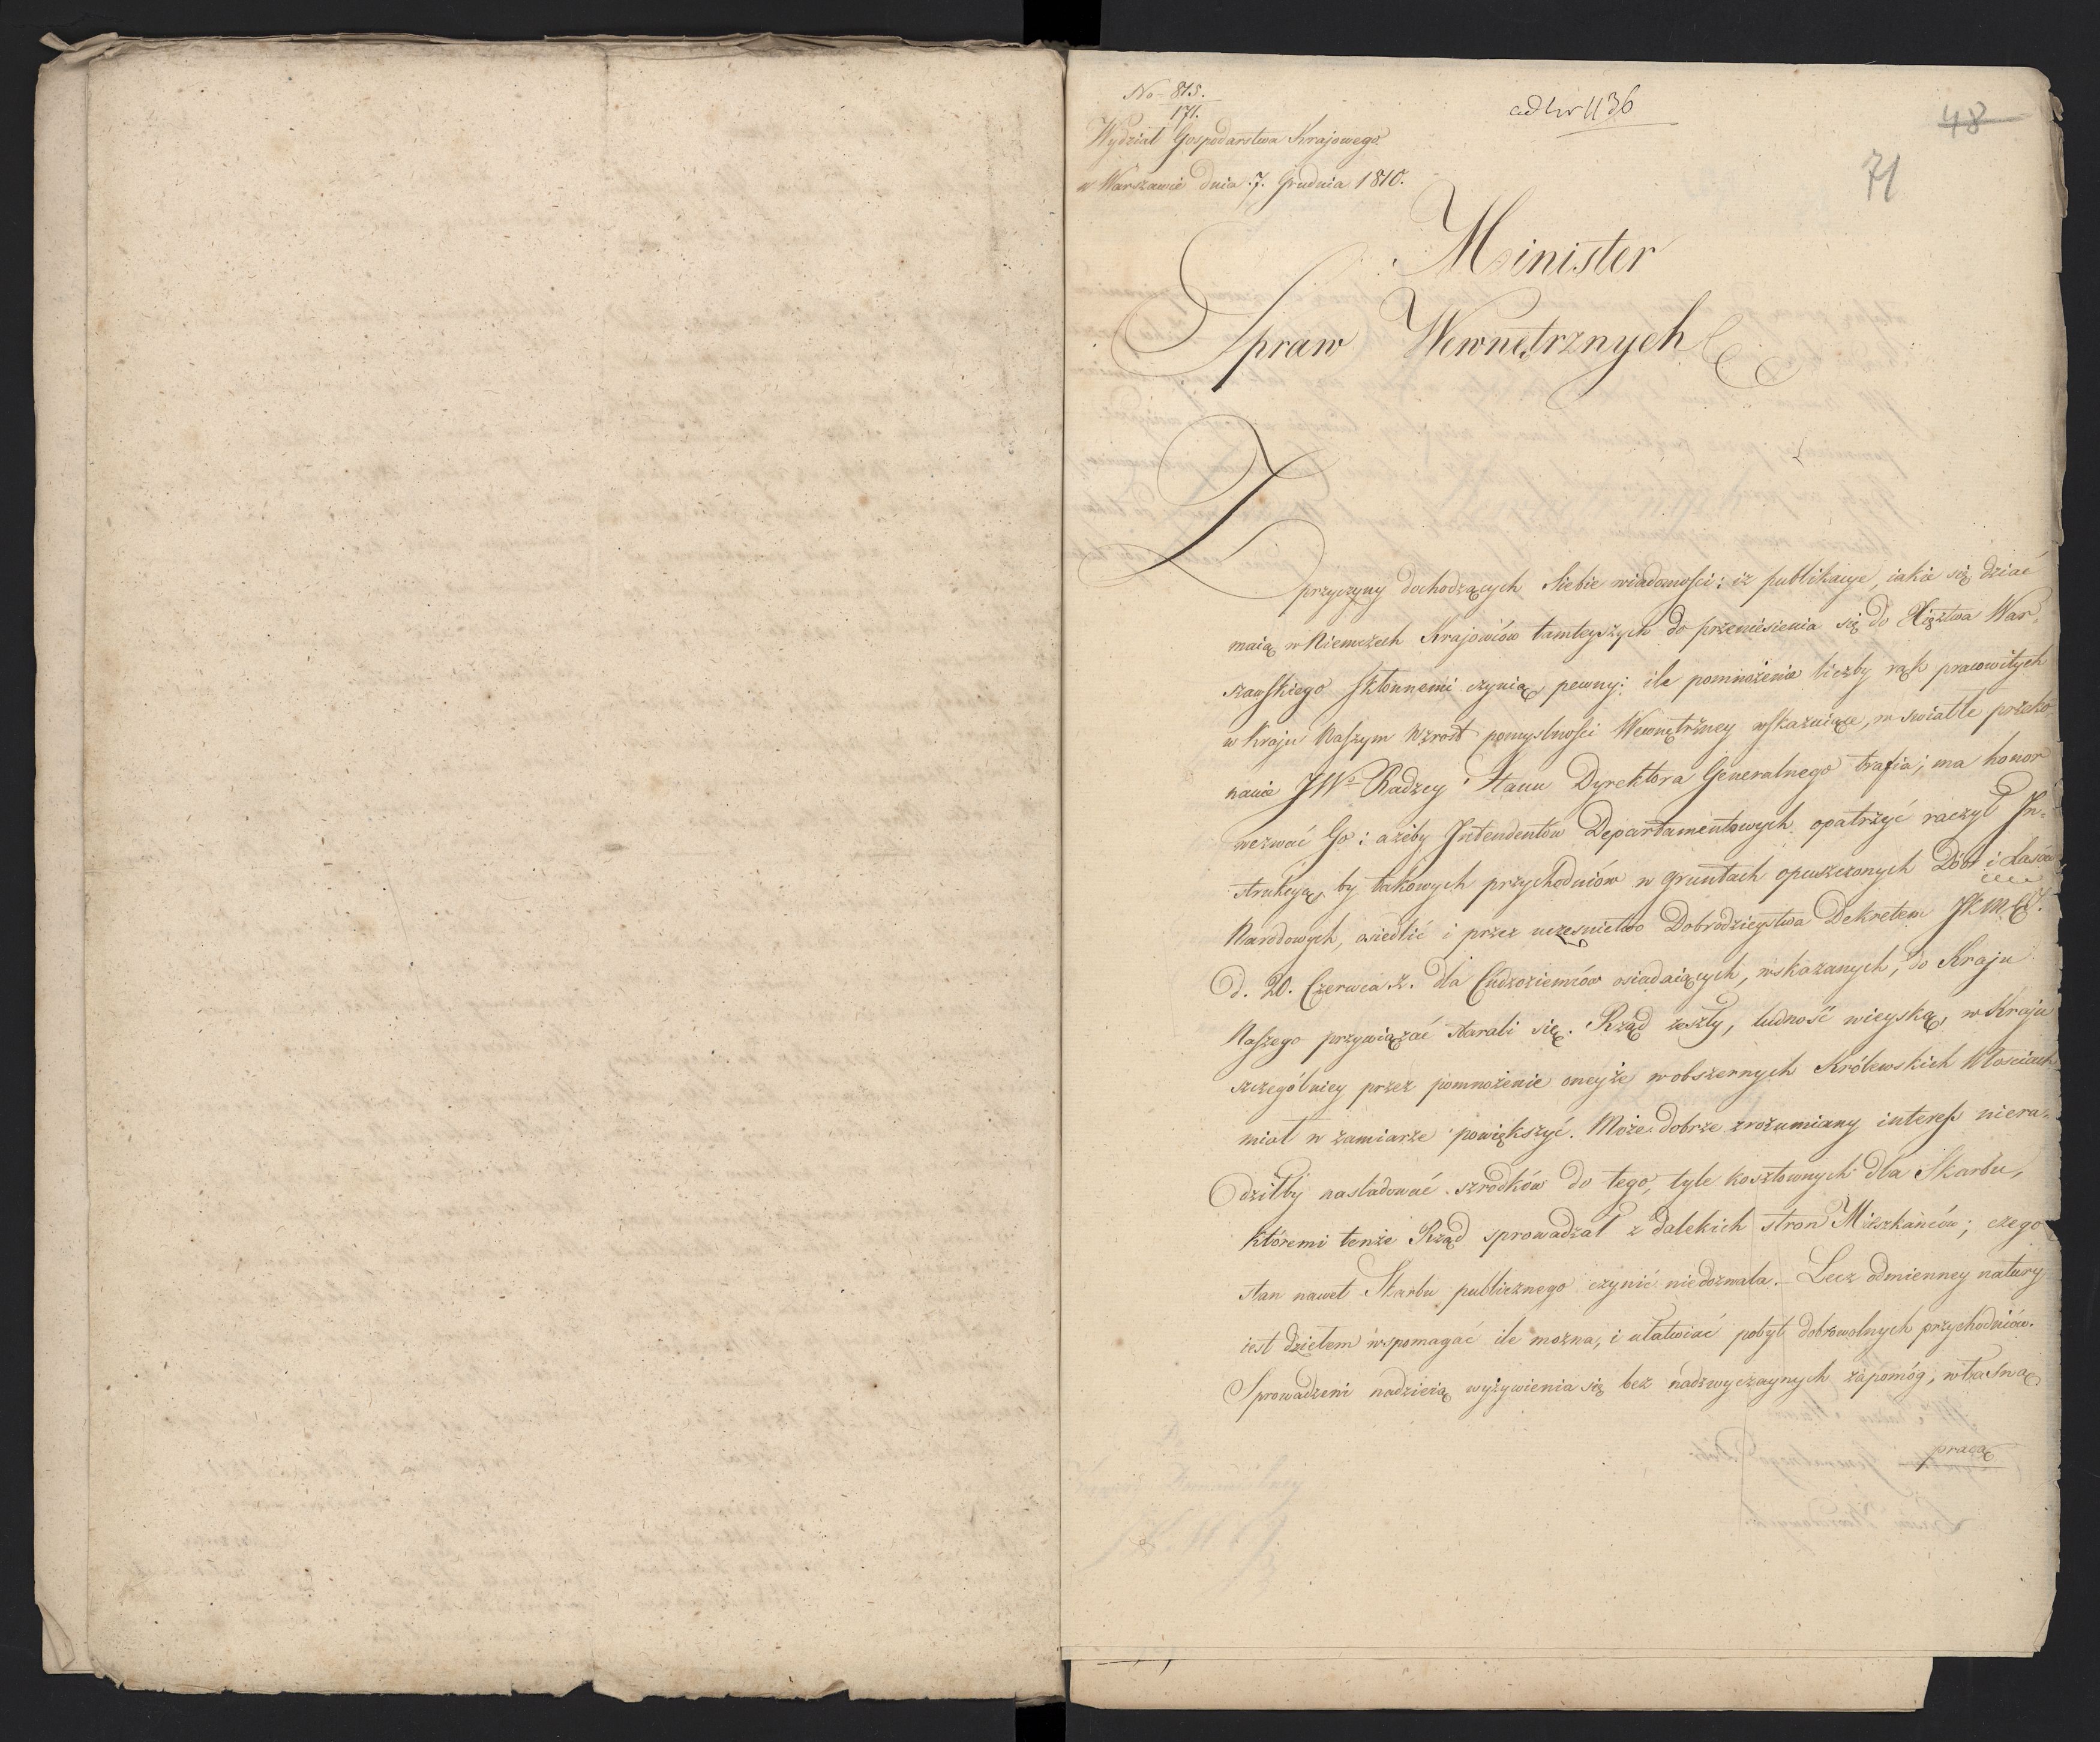 No 815.
171.
Wydział Gospodarstwa Krajowego.
w Warszawie dnia 7. Grudnia 1810.
ad Nr 1136
48
71
Minister
Spraw Wewnętrznych
Z
przyczyny dochodzących Siebie wiadomości: iż publikacye, iakie się dziać
maią w Niemczech Krajowców tamteyszych do przeniesienia się do Xięztwa War,
szawskiego skłonnemi czynią, pewny: ile pomnożenie liczby rąk pracowitych
w Kraju Naszym wzrost pomyslności Wewnętrzney wskazuiące, w swiatłe przeko
nanie JWo Radzcy Stanu Dyrektora Generalnego trafia; ma honor
wezwać Go: ażeby Intendentów Departamentowych opatrzyć raczył In-
strukcyą, by takowych przychodniów w gruntach opuszczonych Dóbr i Lasów
Narodowych, osiedlić i przez uczesnictwo Dobrodzieystwa Dekretem JKMCi
d. 20. Czerwca r. dla Cudzoziemców osiadaiących, wskazanych, do Kraju
Naszego przywiązać starali się. Rząd zeszły, ludność wieyską, w Kraju
szczególniey przez pomnożenie oneyże w obszernych Królewskich Włosciach
miał w zamiarze powiększyć. Może dobrze zrozumiany interess niera-
dziłby nasladować szrodków do tego, tyle kosztownych dla Skarbu,
któremi tenże Rząd sprowadzał z dalekich stron Mieszkańców; czego
stan nawet Skarbu publicznego czynić niedozwala. Lecz odmienney natury
iest dziełem wspomagać ile można, i ułatwiać pobyt dobrowolnych przychodniów.
Sprowadzeni nadzieią wyżywienia się bez nadzwyczaynych zapomóg, własną
pracą